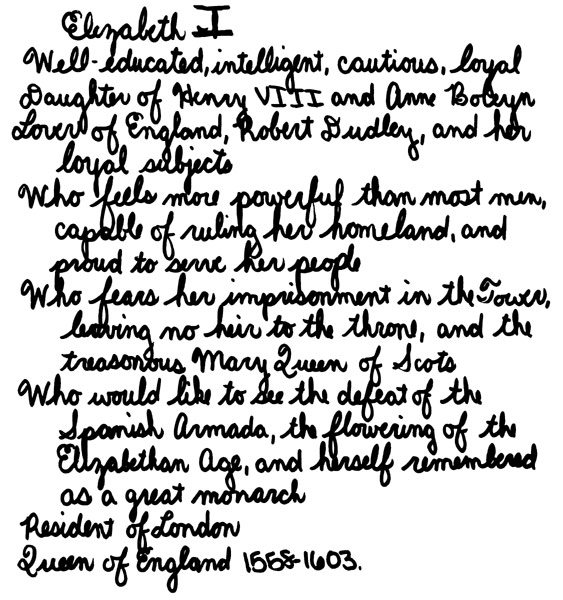 Elizabeth I
Well-educated, intelligent, cautious, loyal
Daughter of Henry VIII and Anne Boleyn
Lover of England, Robert Dudley, and her
loyal subjects
Who feels more powerful than most men,
capable of ruling her homeland, and
proud to serve her people
Who fears her imprisonment in the Tower,
leaving no heir to the throne, and the
treasonous Mary Queen of Scots
Who would like to see the defeat of the
Spanish Armada, the flowering of the
Elizabethan Age, and herself remembered
as a great monarch
Resident of London
Queen of England 1558-1603.